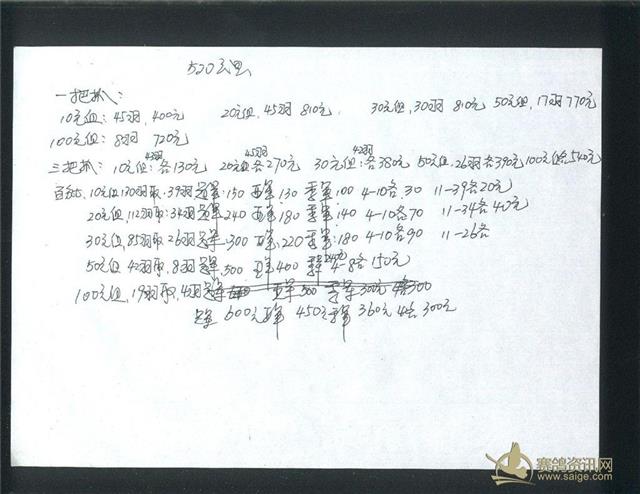 520公里
一把抓:
10元组:45羽,400元 20元组,45羽 810元, 30元组,30羽 810元 50元组,17羽 770元
100元组:8羽 720元
三把抓: 10元组:43羽各130元 20元组45羽各270元 30元组:42羽各380元 50元组,26羽各390元 100元组各540元
10元组130羽取,39羽冠军,150 亚军,130 季军,100 4-10各,30 11-39各20元
20元组,112羽取,34羽冠军,240 亚军,180 季军,140 4-10各70 11-34各40元
30元组,85羽取26羽冠军,300 亚军,220 季军,180 4-10各90 11-26各
50元组 42羽取,8羽冠军,500 亚军400 季军240元 4-8各150元
100元组,19羽取,4羽冠军 亚军500 季军300元 4名300
冠军 600元 亚军 450元 季军 360元 4名 300元
赛鸽资讯网
www.saige.com